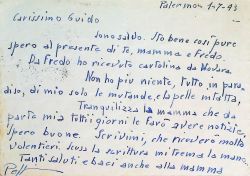 Palermo 1-7-43
Carissimo Guido
Sono saldo. Sto bene così pure
spero al presente di te, mamma e Fredo.
Da Fredo ho ricevuto cartolina da Novara.
Non ho più niente, tutto, in para
diso, di mio solo le mutande, e la pelle intatta,
Tranquilizza la mamma che da
parte mia tutti i giorni le farò avere notizie,
spero buone. Scrivimi, che riceverò molto
volentieri. Scusa la scrittura mi trema la mano.
Tanti saluti e baci anche alla mamma